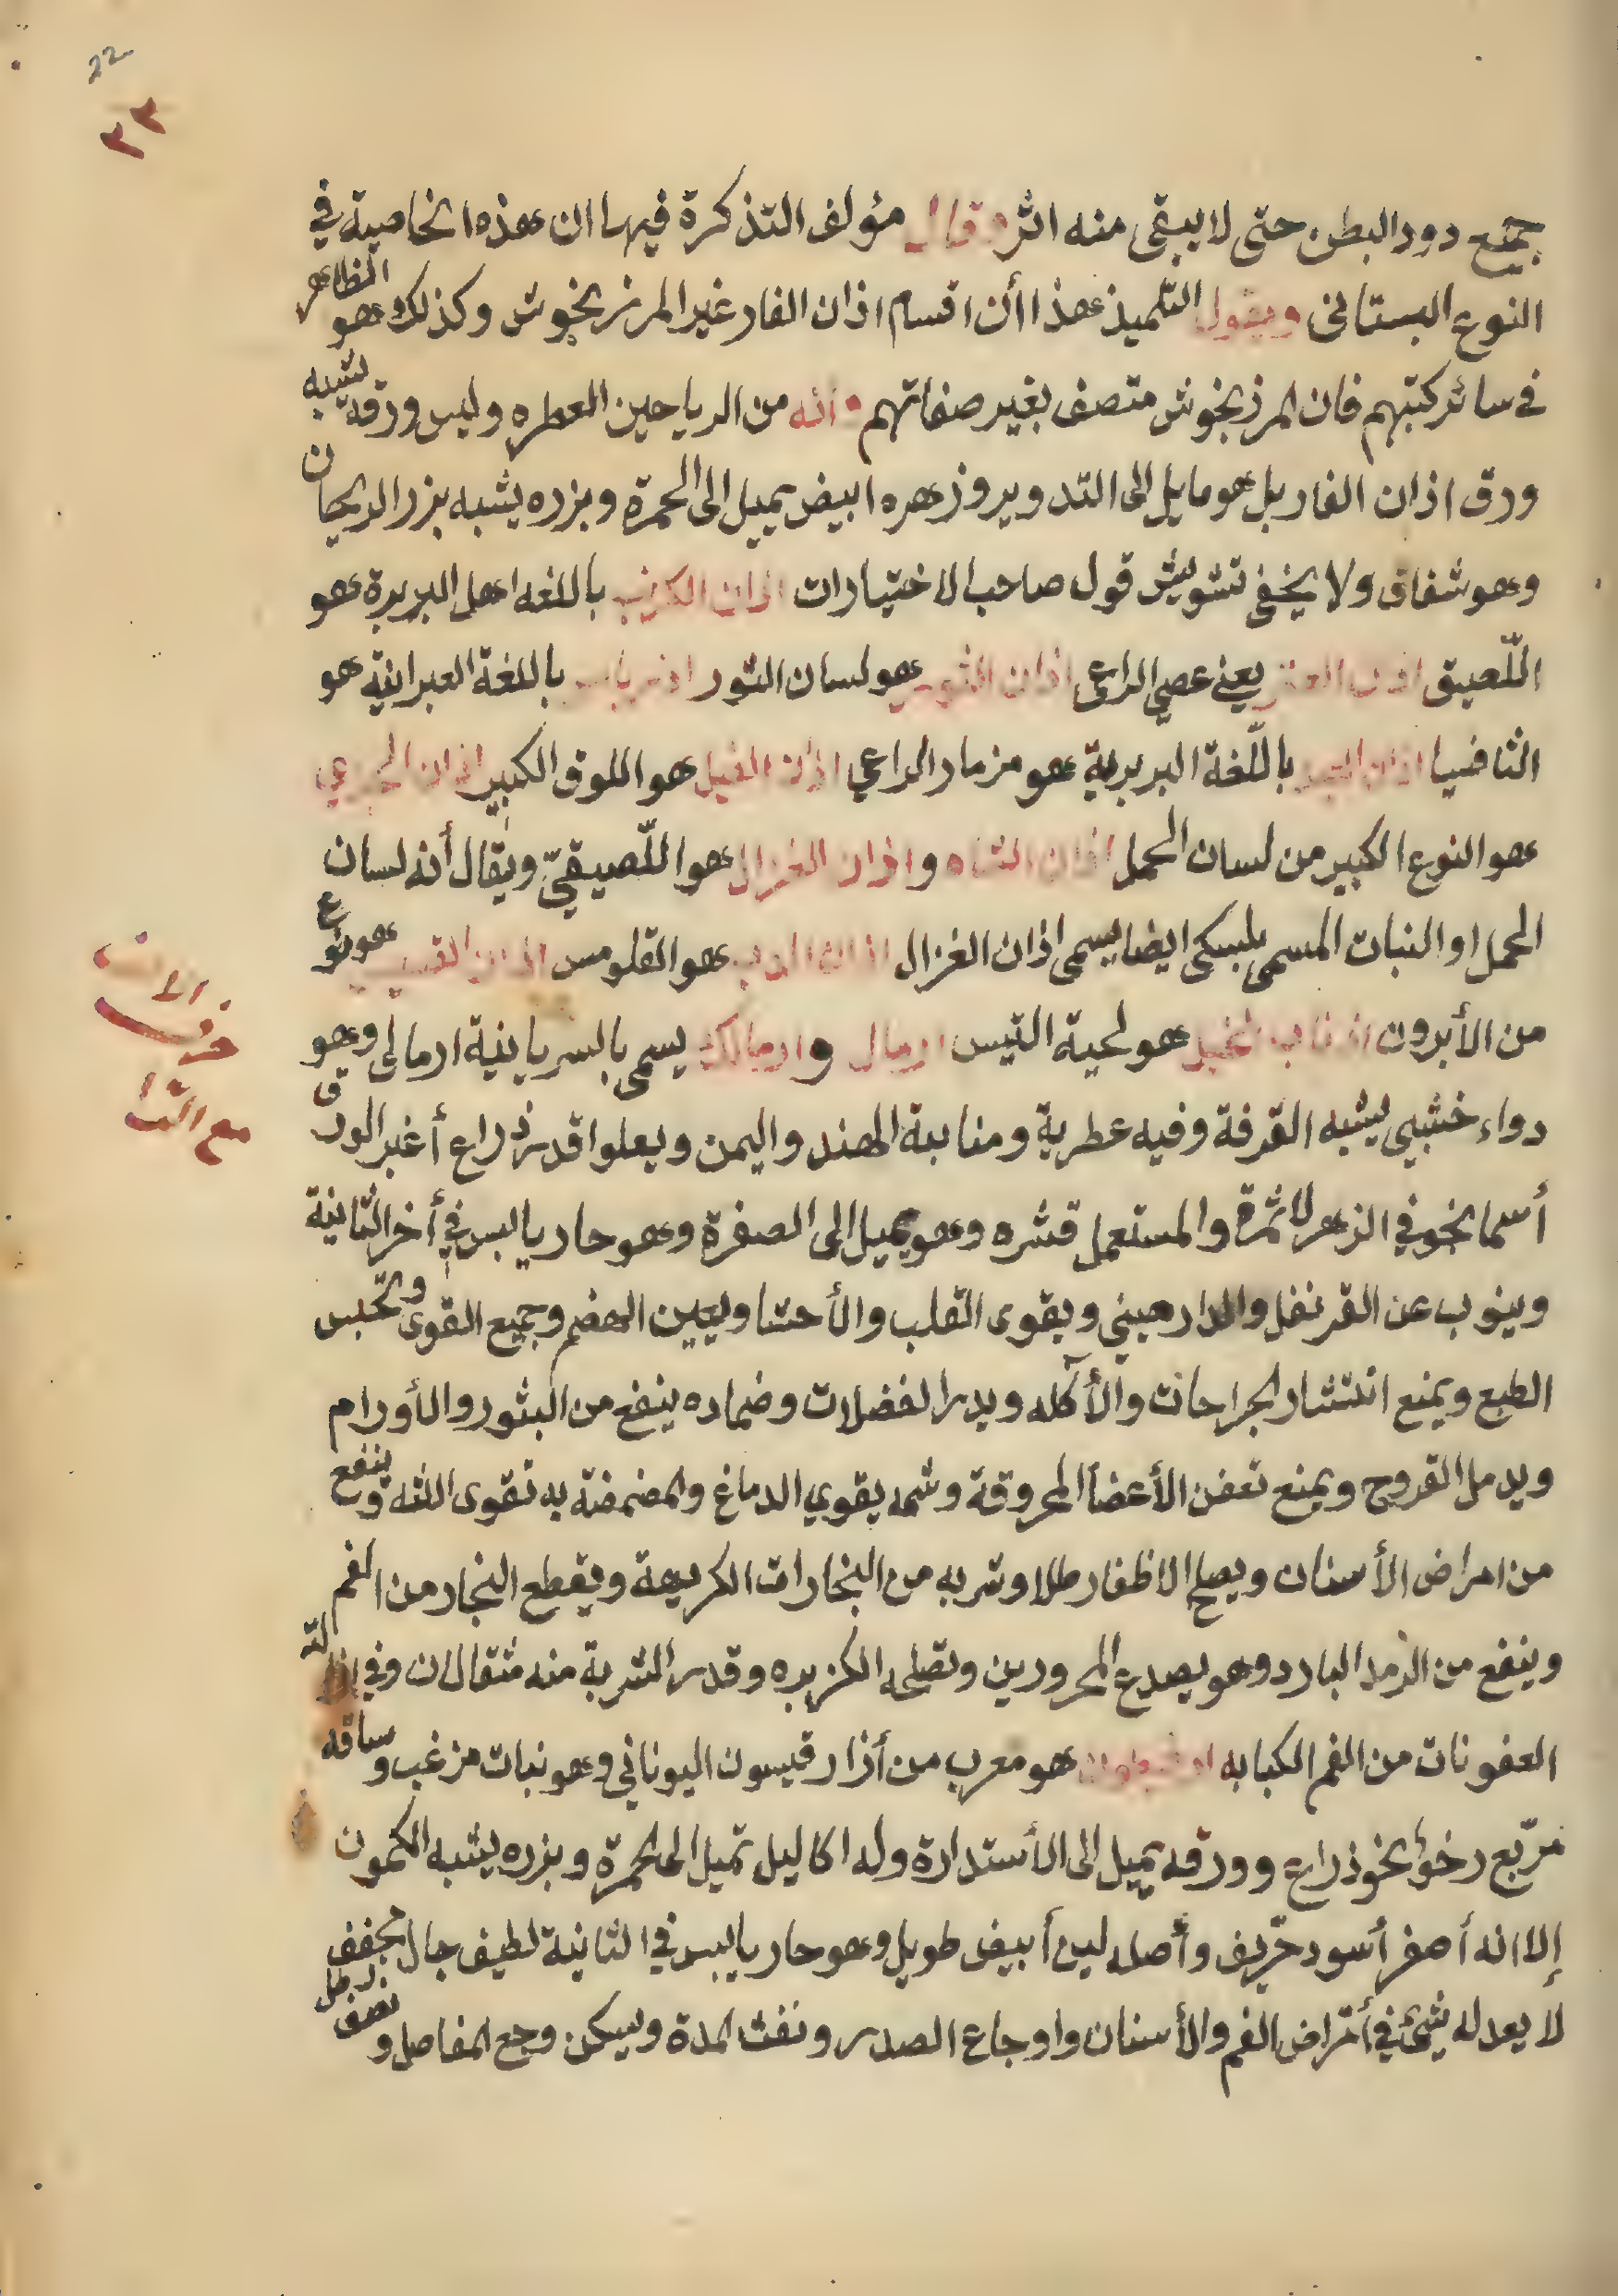 22
٢٢
جميع دود البطن حتى لا يبقى منه اثر وقال مؤلف التذكرة فيها ان هذه الخاصية في
النوع البستاني ويقول التلميذ هذا أن اقسام اذان الفار غير المرزنجوش وكذلك هو الظاهر
في سائر كتبهم فان المرزنجوش متصف بغير صفاتهم وانه من الرياحين العطره وليس ورقه يشبه
ورق اذان الفار بل هو مايل الى التدوير وزهره ابيض يميل الى الحمرة وبزره يشبه بزر الريحان
وهو شفاف ولا يخفى تشويش قول صاحب الاختيارات اذان الكزب باللغه اهل البربرة هو
اللّصيق اذن العنز يعني عصى الراعي اذان الثور هو لسان الثور باللغة العبرانية هو
الثافسيا باللّغة البربرية هو مزمار الراعي اذان الفيل هو اللوف الكبير اذان الجدي
هو النوع الكبير من لسان الحمل اذان الشاه واذان الغزال هو اللّصيقيّ ويقال أنه لسان
الحمل او النبات المسمى بلبسكى ايضا يسمى اذان الغزال اذان الدب هو القلومس اذان القسيس هو نوع
من الأبرون اذناب الخيل هو لحية التيس ارمال وارمالك يسمى بالسريانية ارمالى وهو
حرف الالف
مع الرّاء
دواء خشبي يشبه القرفة وفيه عطرية ومنابته الهند واليمن ويعلوا قدر ذراع أغبر الورق
أسمانجوني الزهر لا ثمرة والمستعمل قشره وهو يميل الى الصفرة وهو حار يابس في أخر الثانية
وينوب عن القرنفل والدارصيني ويقوى القلب والأحشا ويعين الهضم وجميع القوى وتحبس
الطبع ويمنع انتشار الجراحات والأكله ويدر الفضلات وضماده ينفع من البثور والأورام
ويدمل القروح ويمنع تعفن الأعضآ المحروقة وشمه يقوي الدماغ والمضمضة به تقوى اللثه وينفع
من امراض الأسنان ويصلح الاظفار طلا وشربه من البخارات الكريهة ويقطع البخار من الفم
وينفع من الرمد البارد وهو يصدع المحرورين وتصلحه الكزبره وقدر الشربة منه مثقالان وفي ازالته
العفونات من الفم الكبابه هو معرب من أذارقيسون اليوناني وهو نبات مزغب وساقه
مربّع رخوا نحو ذراع وورقه يميل الى الأستدارة وله اكاليل تميل الى الحمرة وبزره يشبه الكمون
إلا انه أصفر أسود حرّيف وأصله لين أبيض طويل وهو حار يابس في الثانية لطيف جال مجفف
لا يعدله شئ في أمراض الفم والأسنان واوجاع الصدر ونفث المدة ويسكن وجع المفاصل و نصف رطل